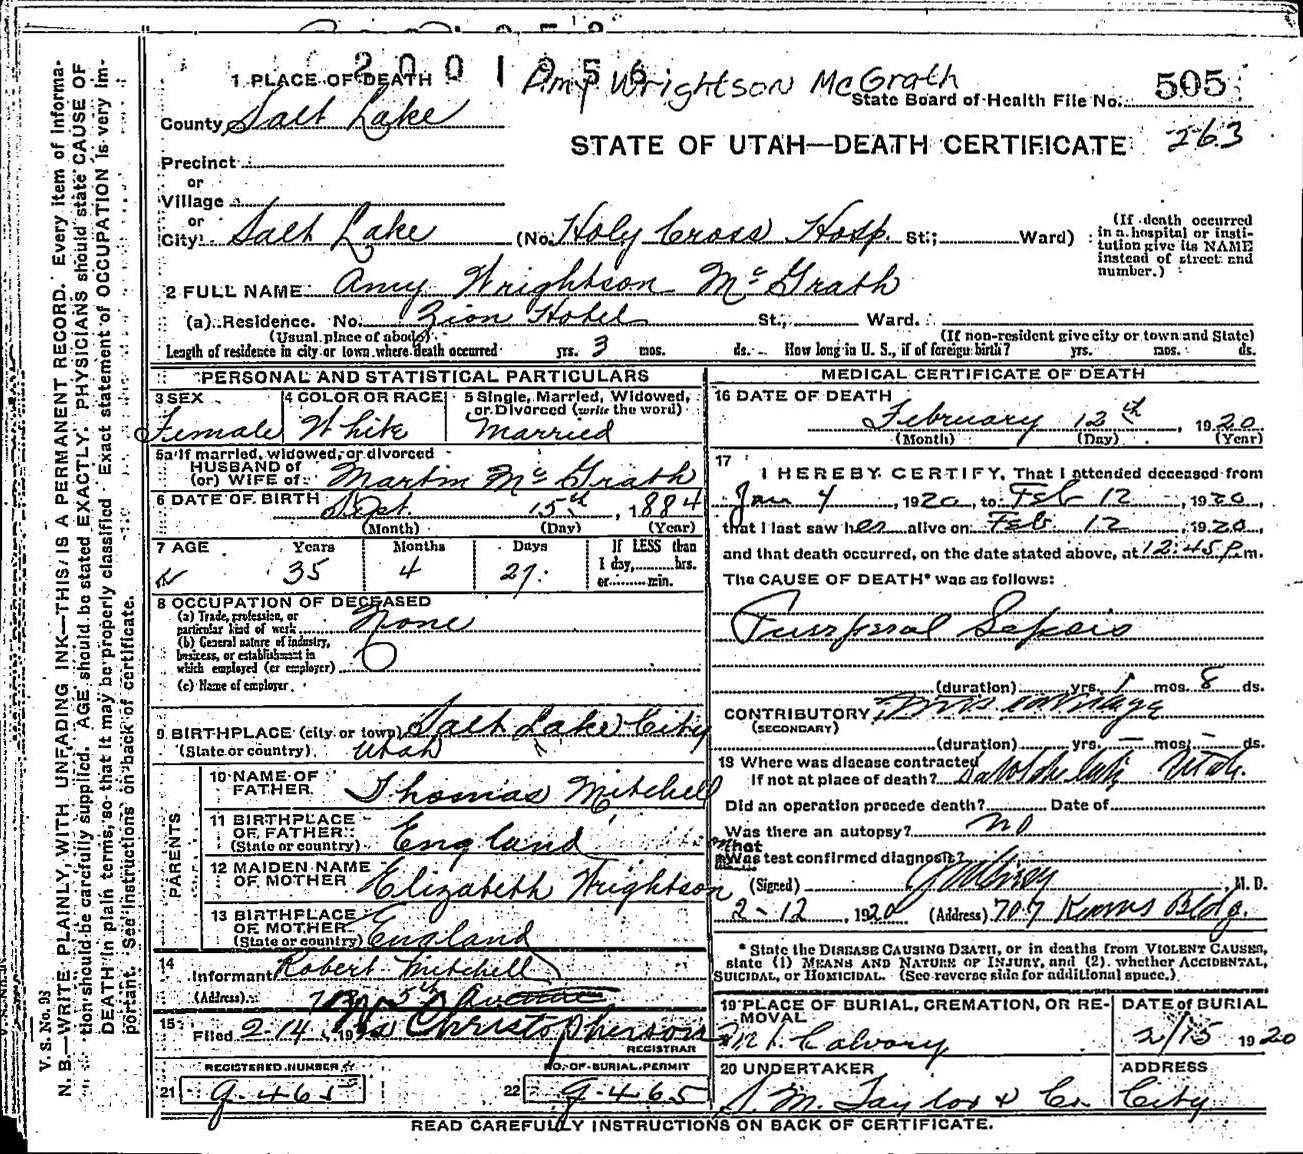 2001256
Amy Wrightson McGrath
1 PLACE OF DEATH
State Board of Health File No. 505
County Salt Lake
STATE OF UTAH—DEATH CERTIFICATE 263
Precinct
or
Village
or
City Salt Lake (No. Holy Cross Hosp. St.; Ward)
(If death occurred in a hospital or insti-
tution give its NAME
instead of street and
number.)
2 FULL NAME Amy Wrightson McGrath
(a) Residence. No. Zion Hotel St., Ward.
(Usual place of abode) (If non-resident give city or town and State)
Length of residence in city or town where death occurred yrs. 3 mos. ds. How long in U. S., if of foreign birth? yrs. mos. ds.
PERSONAL AND STATISTICAL PARTICULARS
3 SEX Female
4 COLOR OR RACE White
5 Single, Married, Widowed,
or Divorced (write the word)
Married
5a If married, widowed, or divorced
HUSBAND of
(or) WIFE of Martin McGrath
6 DATE OF BIRTH Sept. 15th, 1884
(Month) (Day) (Year)
7 AGE Years Months Days If LESS than
35 4 27 1 day, hrs.
or min.
8 OCCUPATION OF DECEASED
(a) Trade, profession, or
particular kind of work None
(b) General nature of industry,
business, or establishment in
which employed (or employer)
(c) Name of employer
9 BIRTHPLACE (city or town) Salt Lake City
(State or country) Utah
PARENTS
10 NAME OF
FATHER Thomas Mitchell
11 BIRTHPLACE
OF FATHER
(State or country) England
12 MAIDEN NAME
OF MOTHER Elizabeth Wrightson
13 BIRTHPLACE
OF MOTHER
(State or country) England
14
Informant Robert Mitchell
(Address) 5th Avenue
15
Filed 2-14, 19 Christopherson
REGISTRAR
REGISTERED NUMBER NO. OF BURIAL PERMIT
21 g-465 22 g-465
MEDICAL CERTIFICATE OF DEATH
16 DATE OF DEATH
February 12th, 1920
(Month) (Day) (Year)
17
I HEREBY CERTIFY, That I attended deceased from
Jan 4, 1920, to Feb 12, 1920,
that I last saw her alive on Feb 12, 1920,
and that death occurred, on the date stated above, at 12:45 P.m.
The CAUSE OF DEATH* was as follows:
Puerperal Sepsis
(duration) yrs. 1 mos. 8 ds.
CONTRIBUTORY Miscarriage
(SECONDARY)
(duration) yrs. — mos. — ds.
18 Where was disease contracted
If not at place of death? Salt Lake City Utah.
Did an operation precede death? Date of
Was there an autopsy? no
What test confirmed diagnosis?
(Signed) , M. D.
2-12, 1920 (Address) 707 Kearns Bldg.
* State the DISEASE CAUSING DEATH, or in deaths from VIOLENT CAUSES,
state (1) MEANS AND NATURE OF INJURY, and (2) whether ACCIDENTAL,
SUICIDAL, or HOMICIDAL. (See reverse side for additional space.)
19 PLACE OF BURIAL, CREMATION, OR RE-
MOVAL
Mt. Calvary
DATE of BURIAL
2/15 1920
20 UNDERTAKER
S. M. Taylor & Co.
ADDRESS
City
READ CAREFULLY INSTRUCTIONS ON BACK OF CERTIFICATE.
V. S. No. 98
N. B.—WRITE PLAINLY, WITH UNFADING INK—THIS IS A PERMANENT RECORD. Every item of informa-
tion should be carefully supplied. AGE should be stated EXACTLY. PHYSICIANS should state CAUSE OF
DEATH in plain terms, so that it may be properly classified. Exact statement of OCCUPATION is very im-
portant. See instructions on back of certificate.